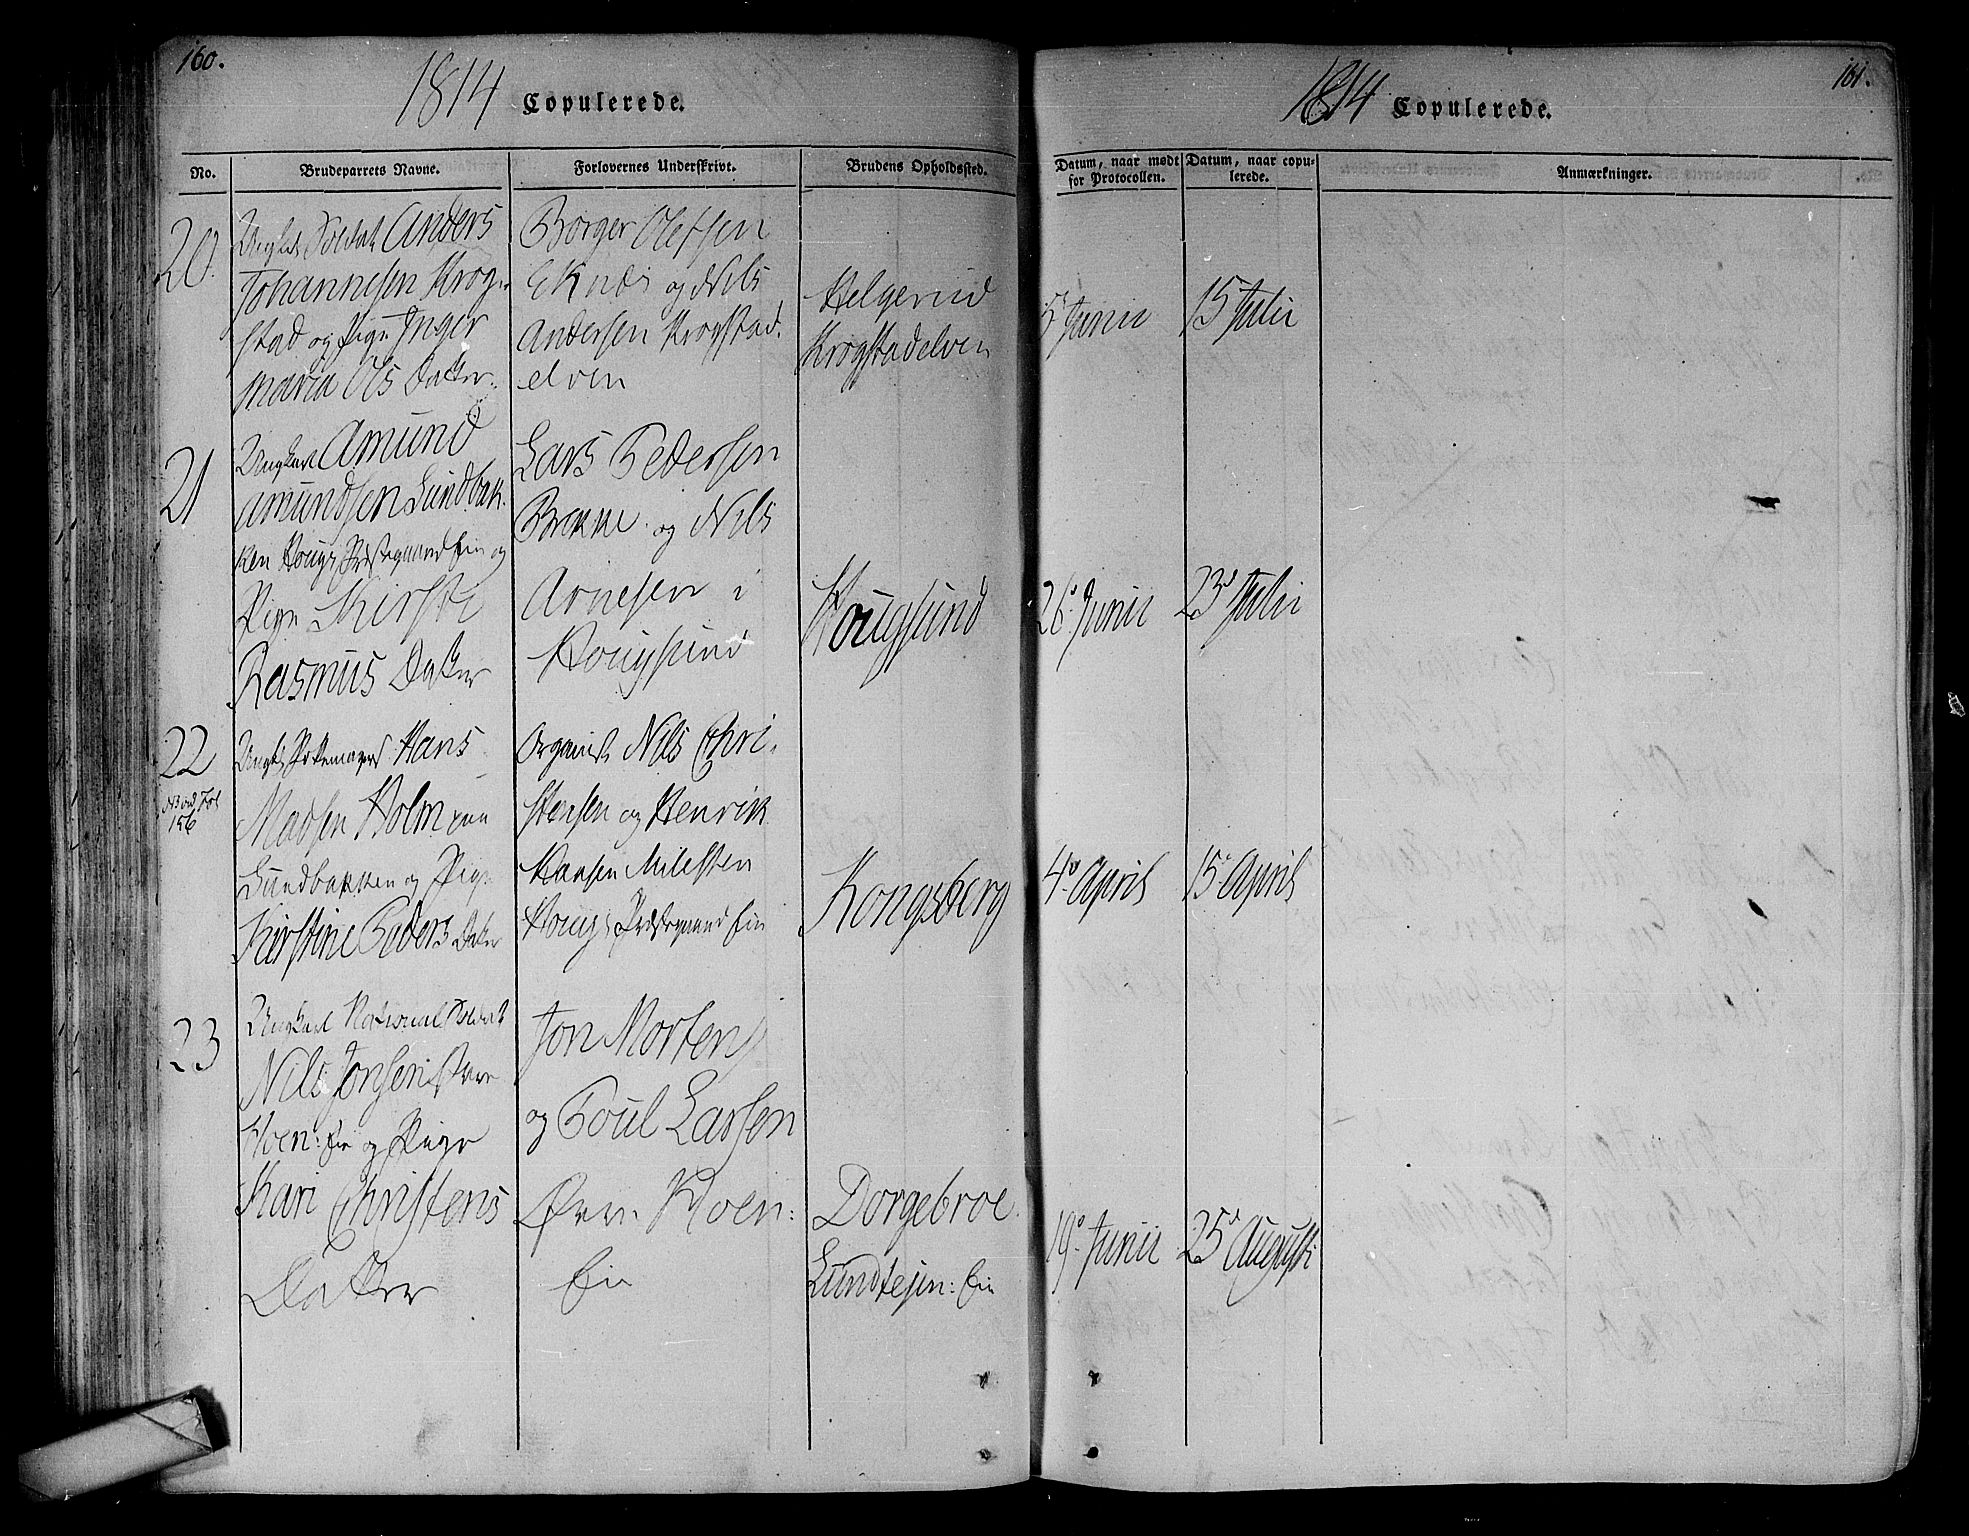 160.
1814 Copulerede.
No.
Brudeparrets Navne.
Forlovernes Underskrivt.
Brudens Opholdssted.
20.
Ungk. Soldat Anders
Johannesen Krog-
stad og Pige Inger
Maria Ols Datter.
Borger Olefsen
Eknæs og Nils
Andersen Krogstad.
elven
Helgerud
Krogstadelven
21
Ungkarl Amund
Amundsen Lundbak-
ken Hougs Præstegaard Eie og
Pige Kirsti
Rasmus Datter
Lars Pedersen
Brække og Nils
Arnesen i
Hougsund
Hougsund
22
NB vid Fol
156
Ungk. Hans
Madsen Holm
Lundbakken og Pige
Kirstine Peders Datter
Organist Nils Chri-
stensen og Henrik
Hansen Milesten
Hougs Præstegaard Eie
Kongsberg
23
Ungkarl National Soldat
Nils Jonsen Øvre
Hoen: Eie og Pige
Kari Christens
Datter
Jon Mortens
og Poul Larsen
Øvre Hoen:
Eie
Dorgebroe.
Lundtejen: Eie
161.
1814 Copulerede.
Datum, naar mødt
for Protocollen.
Datum, naar copu-
lerede.
Anmærkninger.
5 Junii
15 Julii
26. Junii
23 Julii
4. April
15. April
19. Junii
25 August